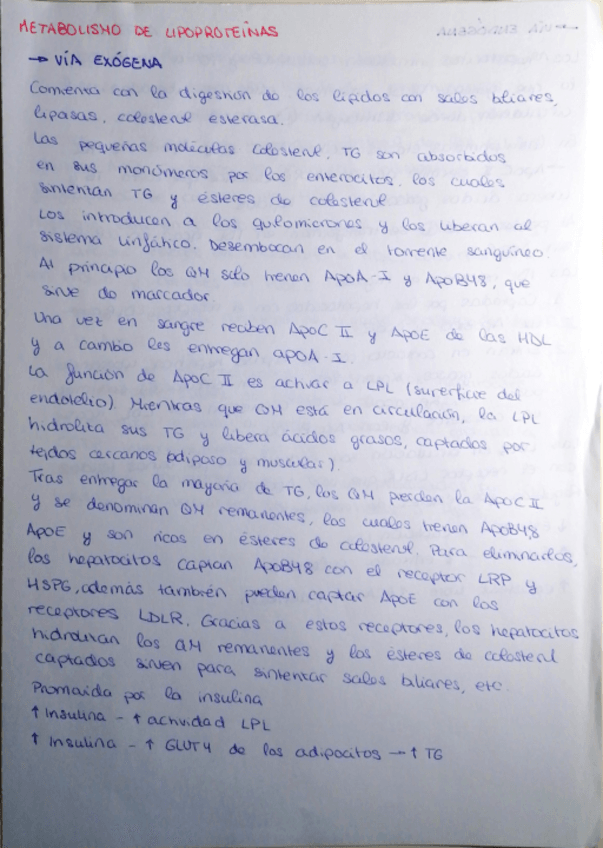 METABOLISMO DE LIPOPROTEÍNAS
→ VÍA EXÓGENA
Comienza con la digestión de los lípidos con sales biliares,
lipasas, colesterol esterasa.
Las pequeñas moléculas colesterol, TG son absorbidos
en sus monómeros por los enterocitos, los cuales
sintentan TG y ésteres de colesterol
Los introducen a los quilomicrones y los liberan al
sistema linfático. Desembocan en el torrente sanguíneo.
Al principio los QM solo tienen ApoA-I y ApoB48, que
sirve de marcador
Una vez en sangre reciben ApoC II y ApoE de las HDL
y a cambio les entregan apoA-I.
La función de ApoC II es activar a LPL (superficie del
endotelio). Mientras que QM está en circulación, la LPL
hidroliza sus TG y libera ácidos grasos, captados por
tejidos cercanos adiposo y muscular)
Tras entregar la mayoría de TG, los QM pierden la ApoC II
y se denominan QM remanentes, los cuales tienen ApoB48
ApoE y son ricos en ésteres de colesterol. Para eliminarlos,
los hepatocitos captan ApoB48 con el receptor LRP y
HSPG, además también pueden captar ApoE con los
receptores LDLR. Gracias a estos receptores, los hepatocitos
hidrolizan los QM remanentes y los ésteres de colesterol
captados sirven para sintentizar sales biliares, etc.
Promovida por la insulina
↑ Insulina - ↑ actividad LPL
↑ Insulina - ↑ GLUT4 de los adipocitos → ↑ TG